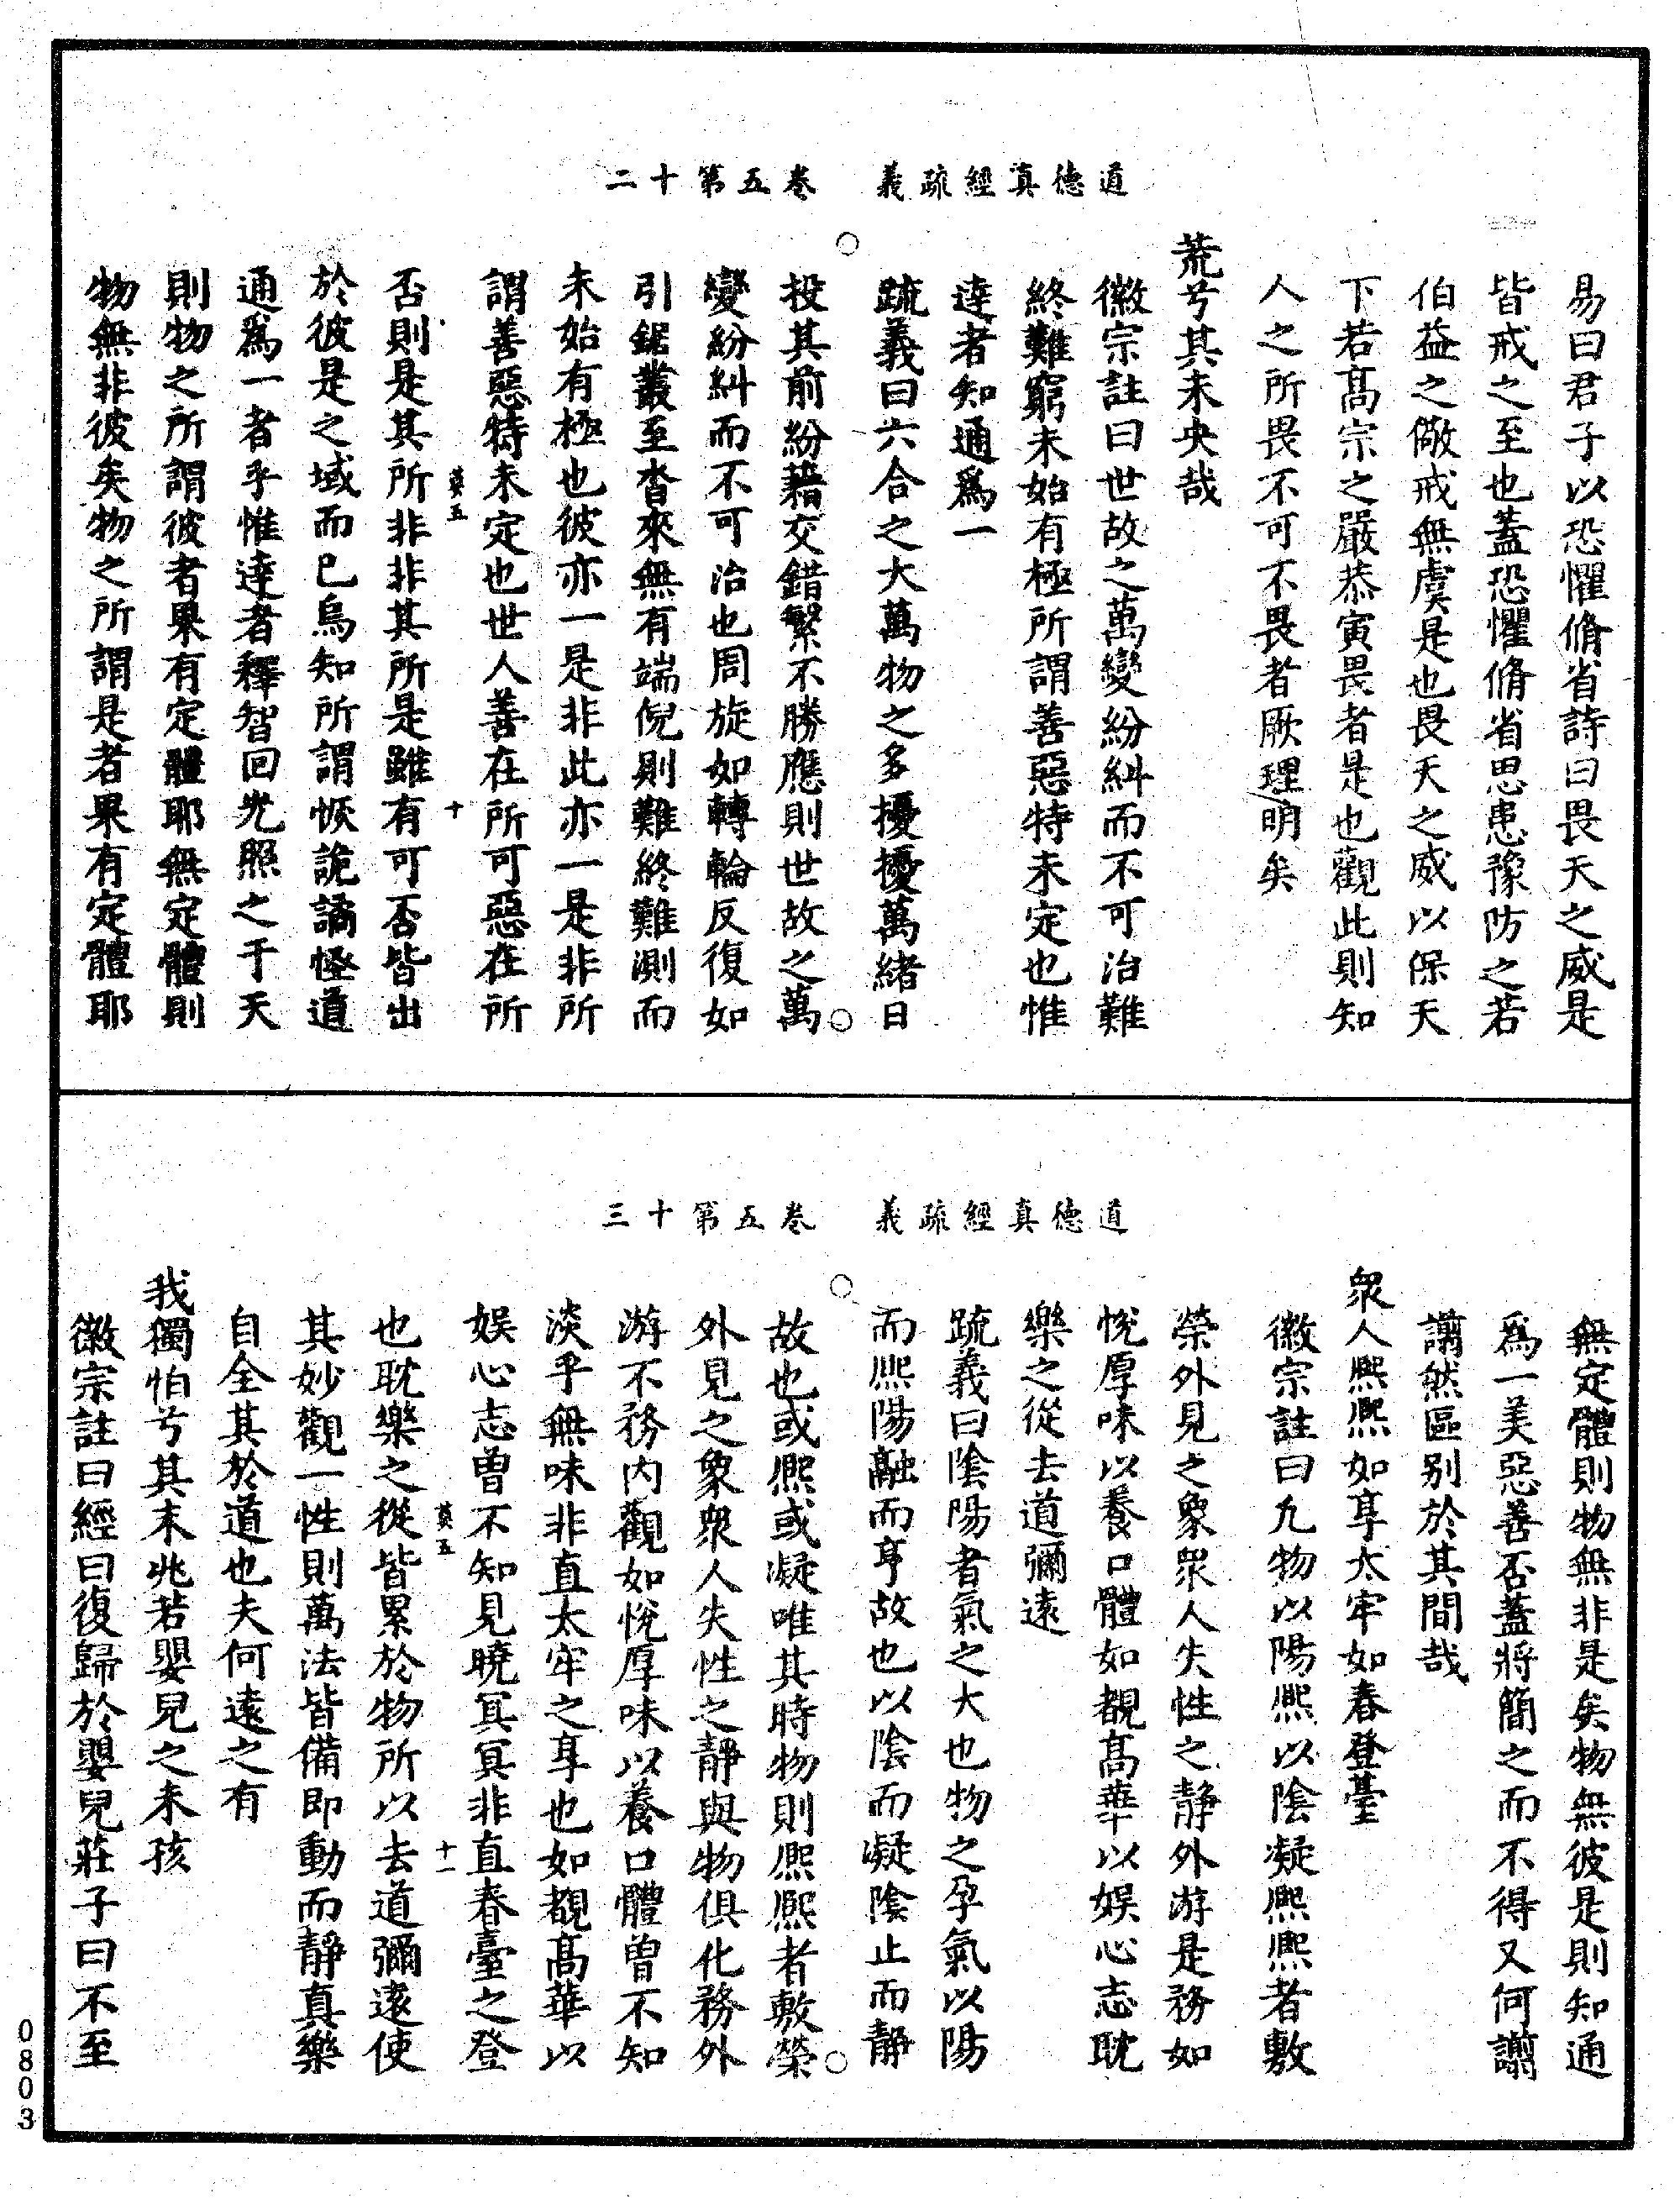 道德真經疏義　卷五第十二
易曰君子以恐懼脩省詩曰畏天之威是
皆戒之至也蓋恐懼脩省思患豫防之若
伯益之儆戒無虞是也畏天之威以保天
下若髙宗之嚴恭寅畏者是也觀此則知
人之所畏不可不畏者厥理明矣
荒兮其未央哉
徽宗註曰世故之萬變紛糾而不可治難
終難窮未始有極所謂善惡特未定也惟
達者知通爲一
疏義曰六合之大萬物之多擾擾萬緒日
投其前紛藉交錯繄不勝應則世故之萬
變紛糾而不可治也周旋如轉輪反復如
引鋸叢至沓來無有端倪則難終難測而
未始有極也彼亦一是非此亦一是非所
謂善惡特未定也世人善在所可惡在所
否則是其所非非其所是雖有可否皆出
莫五　十
於彼是之域而已烏知所謂恢詭譎怪道
通爲一者乎惟達者釋智回光照之于天
則物之所謂彼者果有定體耶無定體則
物無非彼矣物之所謂是者果有定體耶
道德真經疏義　卷五第十三
無定體則物無非是矣物無彼是則知通
爲一美惡善否蓋將簡之而不得又何謭
謭然區别於其間哉
衆人熈熈如享太牢如春登臺
徽宗註曰凡物以陽熈以陰凝熈熈者敷
榮外見之象衆人失性之靜外游是務如
悅厚味以養口體如覩髙華以娱心志耽
樂之從去道彌遠
疏義曰陰陽者氣之大也物之孕氣以陽
而熈陽融而亨故也以陰而凝陰止而靜
故也或熈或凝唯其時物則熈熈者敷榮
外見之象衆人失性之靜與物俱化務外
游不務内觀如悅厚味以養口體曾不知
淡乎無味非直太牢之享也如覩髙華以
娱心志曾不知見曉冥冥非直春臺之登
莫五　十一
也耽樂之從皆累於物所以去道彌遠使
其妙觀一性則萬法皆備即動而靜真樂
自全其於道也夫何遠之有
我獨怕兮其未兆若嬰兒之未孩
徽宗註曰經曰復歸於嬰兒莊子曰不至
0803